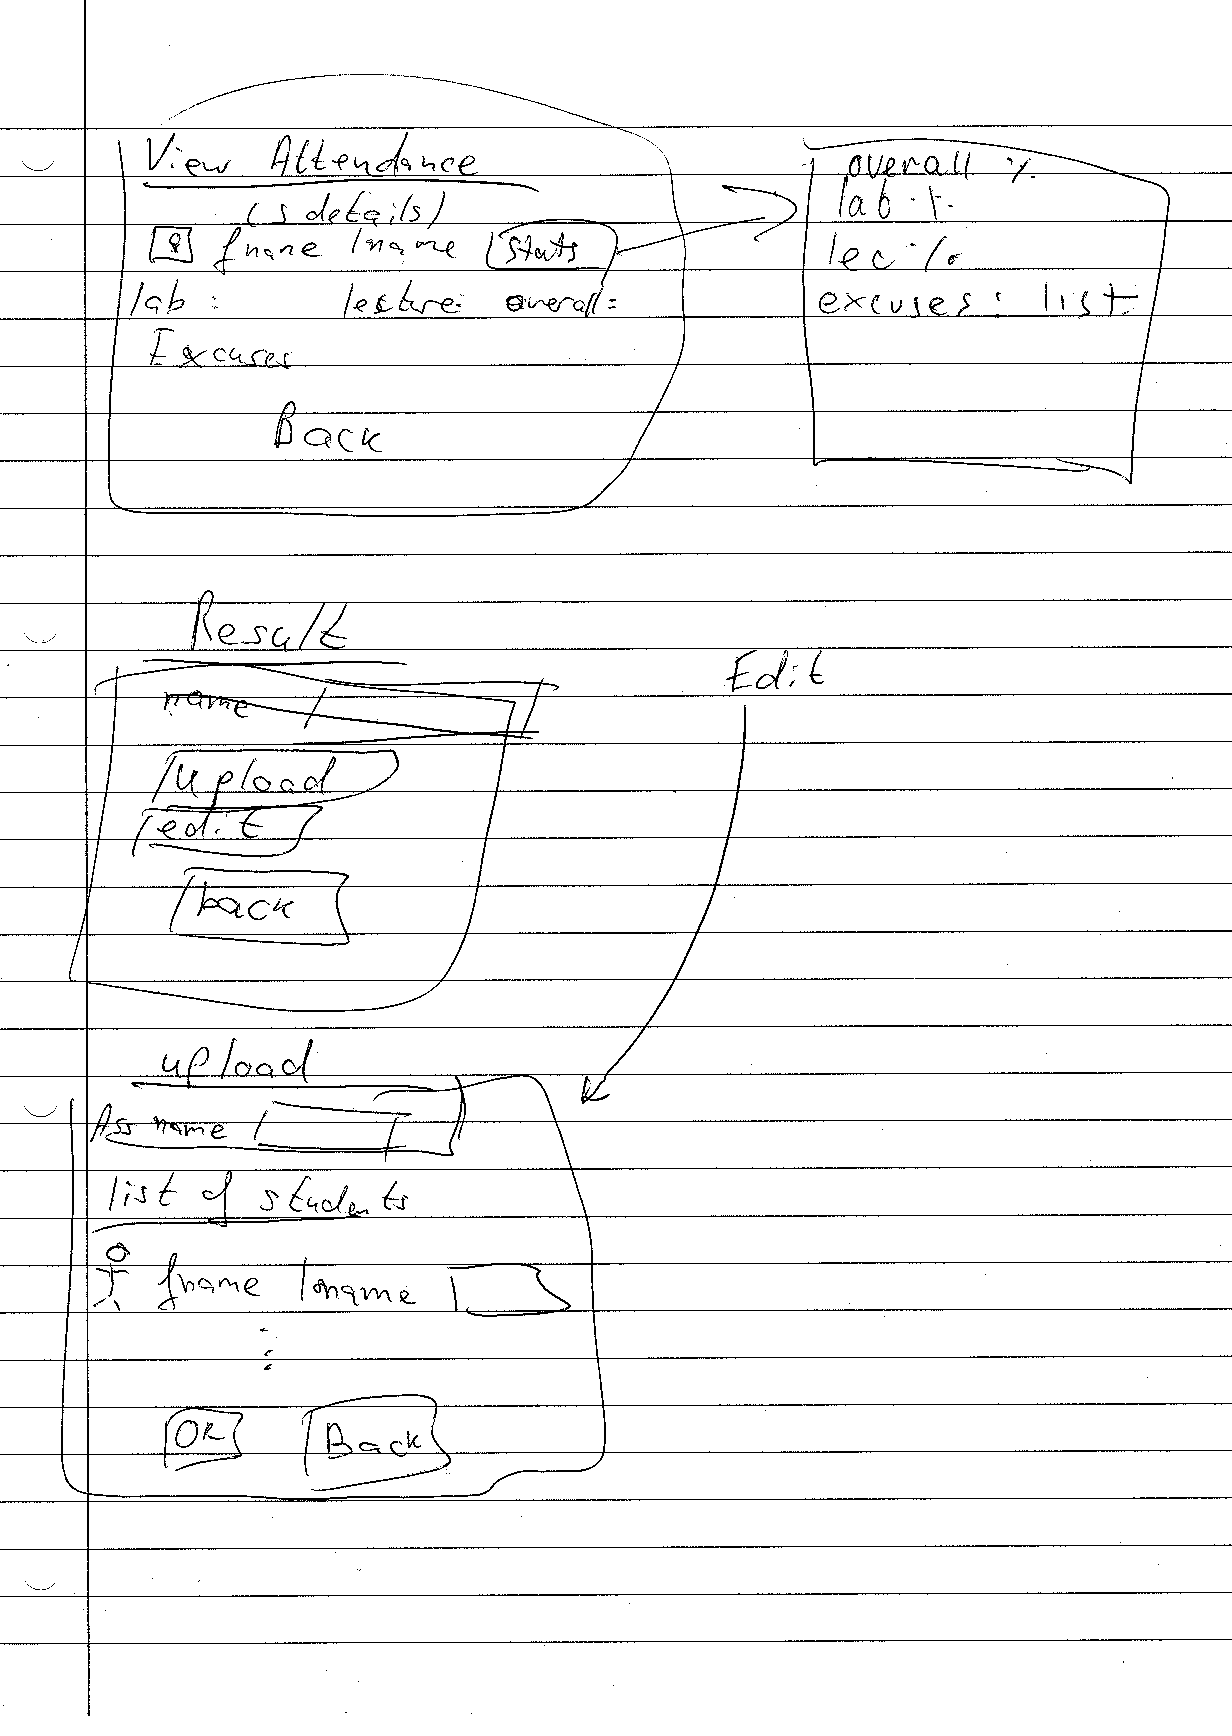 View Attendance
(s details)
fname lname stats
lab : lecture: overall:
Excuses
Back
overall %
lab %
lec %
excuses: list
Result
name
upload
edit
back
Edit
upload
Ass name
list of students
fname lname
:
OK Back